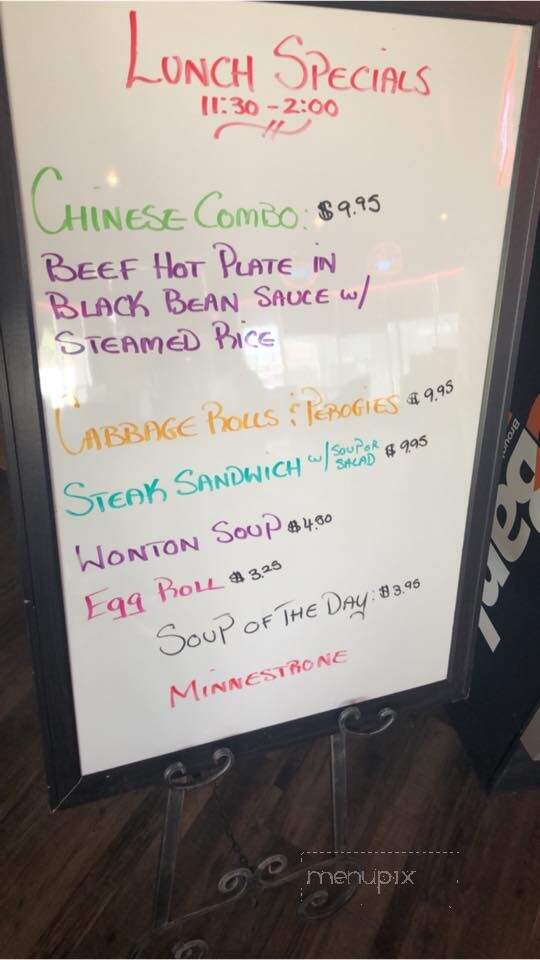 Lunch Specials
11:30 - 2:00
Chinese Combo: $9.95
Beef Hot Plate in
Black Bean Sauce w/
Steamed Rice
Cabbage Rolls & Perogies $9.95
Steak Sandwich w/ Soup or Salad $9.95
Wonton Soup $4.50
Egg Roll $3.25
Soup of the Day: $3.95
Minnestrone
menupix